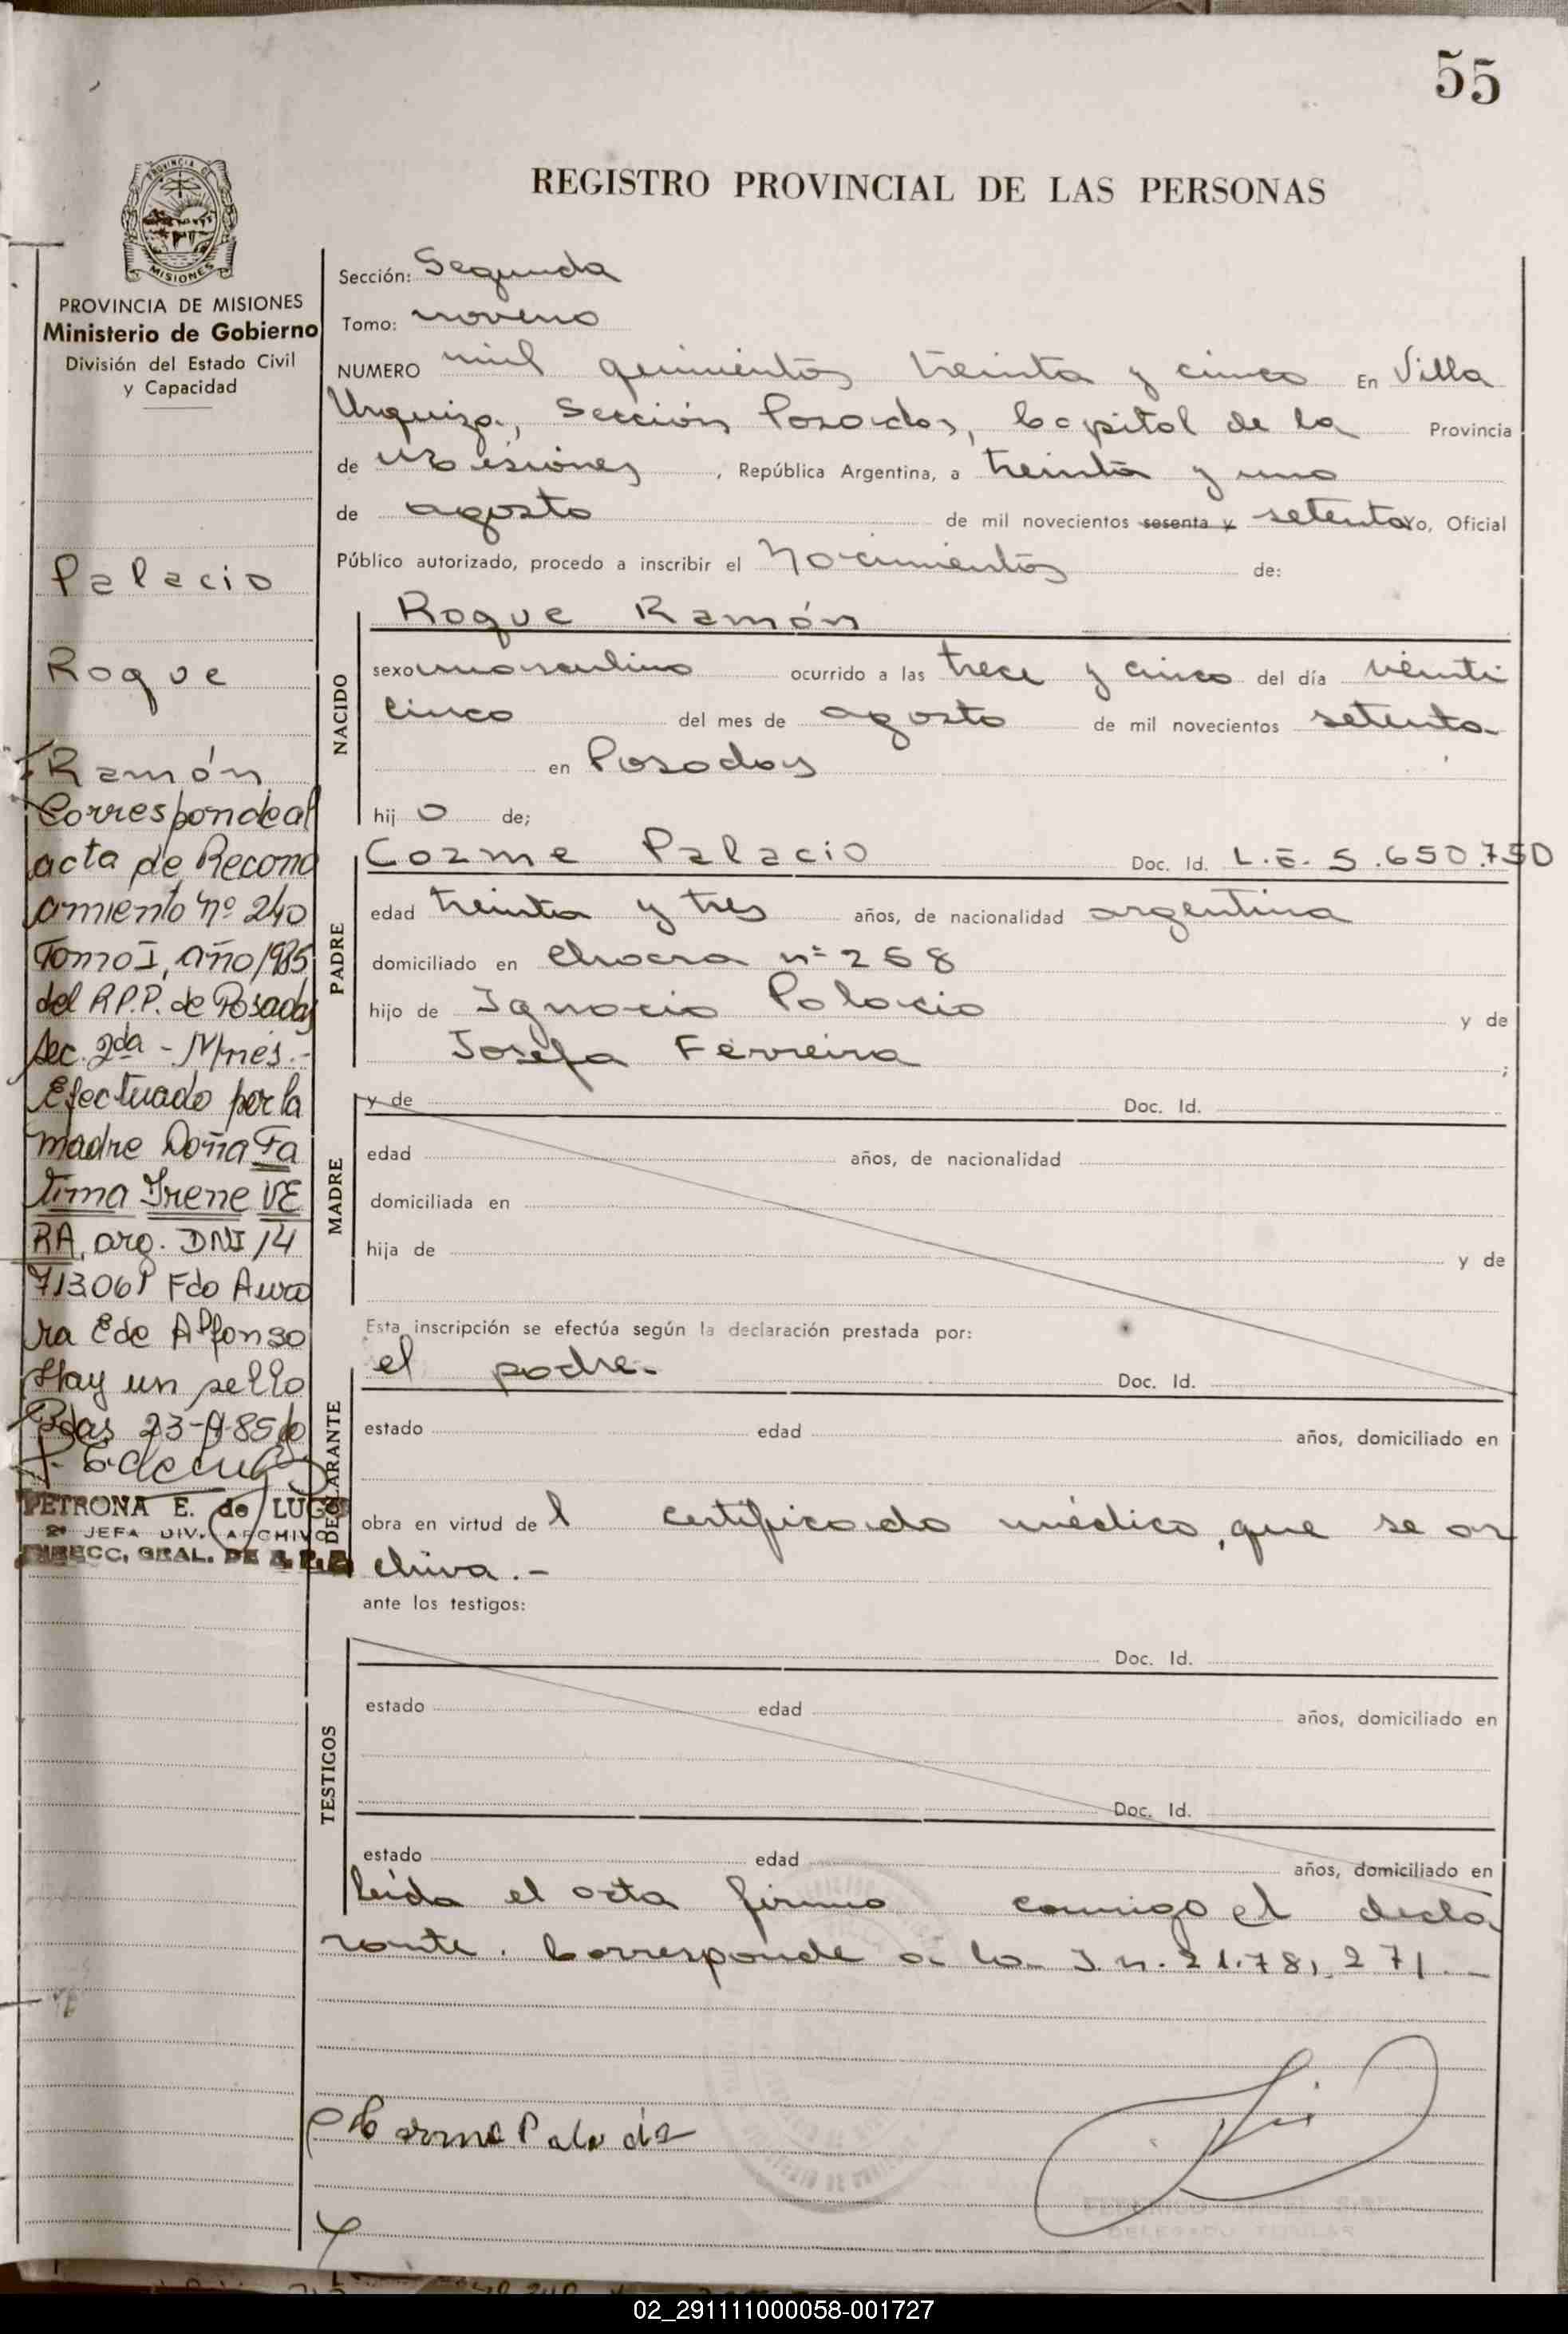 55
REGISTRO PROVINCIAL DE LAS PERSONAS
PROVINCIA DE MISIONES
MISIONES
PROVINCIA DE MISIONES
Ministerio de Gobierno
División del Estado Civil
y Capacidad
Palacio
Roque
Ramón
Corresponde al
acta de Recono
amiento nº 240
Tomo I, año 1985
del R.P.P. de Posadas
Sec. 2da - Mnes.-
Efectuado por la
madre Doña Fa
tima Irene VE
RA, arg. DNI 14
713061 Fdo Auro
ra E de Alfonso
Hay un sello
Pdas 23-9-85
PETRONA E. de LUGO
2ª JEFA DIV. ARCHIVO
DIRECC. GRAL. DE
Sección: Segunda
Tomo: noveno
NUMERO mil quinientos treinta y cinco En Villa
Urquiza, Sección Posadas, Capital de la Provincia
de Misiones, República Argentina, a treinta y uno
de agosto de mil novecientos sesenta y setenta yo, Oficial
Público autorizado, procedo a inscribir el Nacimiento de:
NACIDO
Roque Ramón
sexo masculino ocurrido a las trece y cinco del día veinti
cinco del mes de agosto de mil novecientos setenta
en Posadas
hij o de;
PADRE
Cozme Palacio Doc. Id. L.E. 5.650.750
edad treinta y tres años, de nacionalidad argentina
domiciliado en Chacra nº 268
hijo de Ignacio Palacio y de
Josefa Ferreira ;
MADRE
y de Doc. Id.
edad años, de nacionalidad
domiciliada en
hija de y de
Esta inscripción se efectúa según la declaración prestada por:
DECLARANTE
el padre.- Doc. Id.
estado edad años, domiciliado en
obra en virtud de l certificado médico, que se ar
chiva.-
ante los testigos:
TESTIGOS
Doc. Id.
estado edad años, domiciliado en
Doc. Id.
estado edad años, domiciliado en
leída el acta firma conmigo el decla
rante. Corresponde a la I.n. 21.781.271.-
DELEGADO TITULAR
02_291111000058-001727